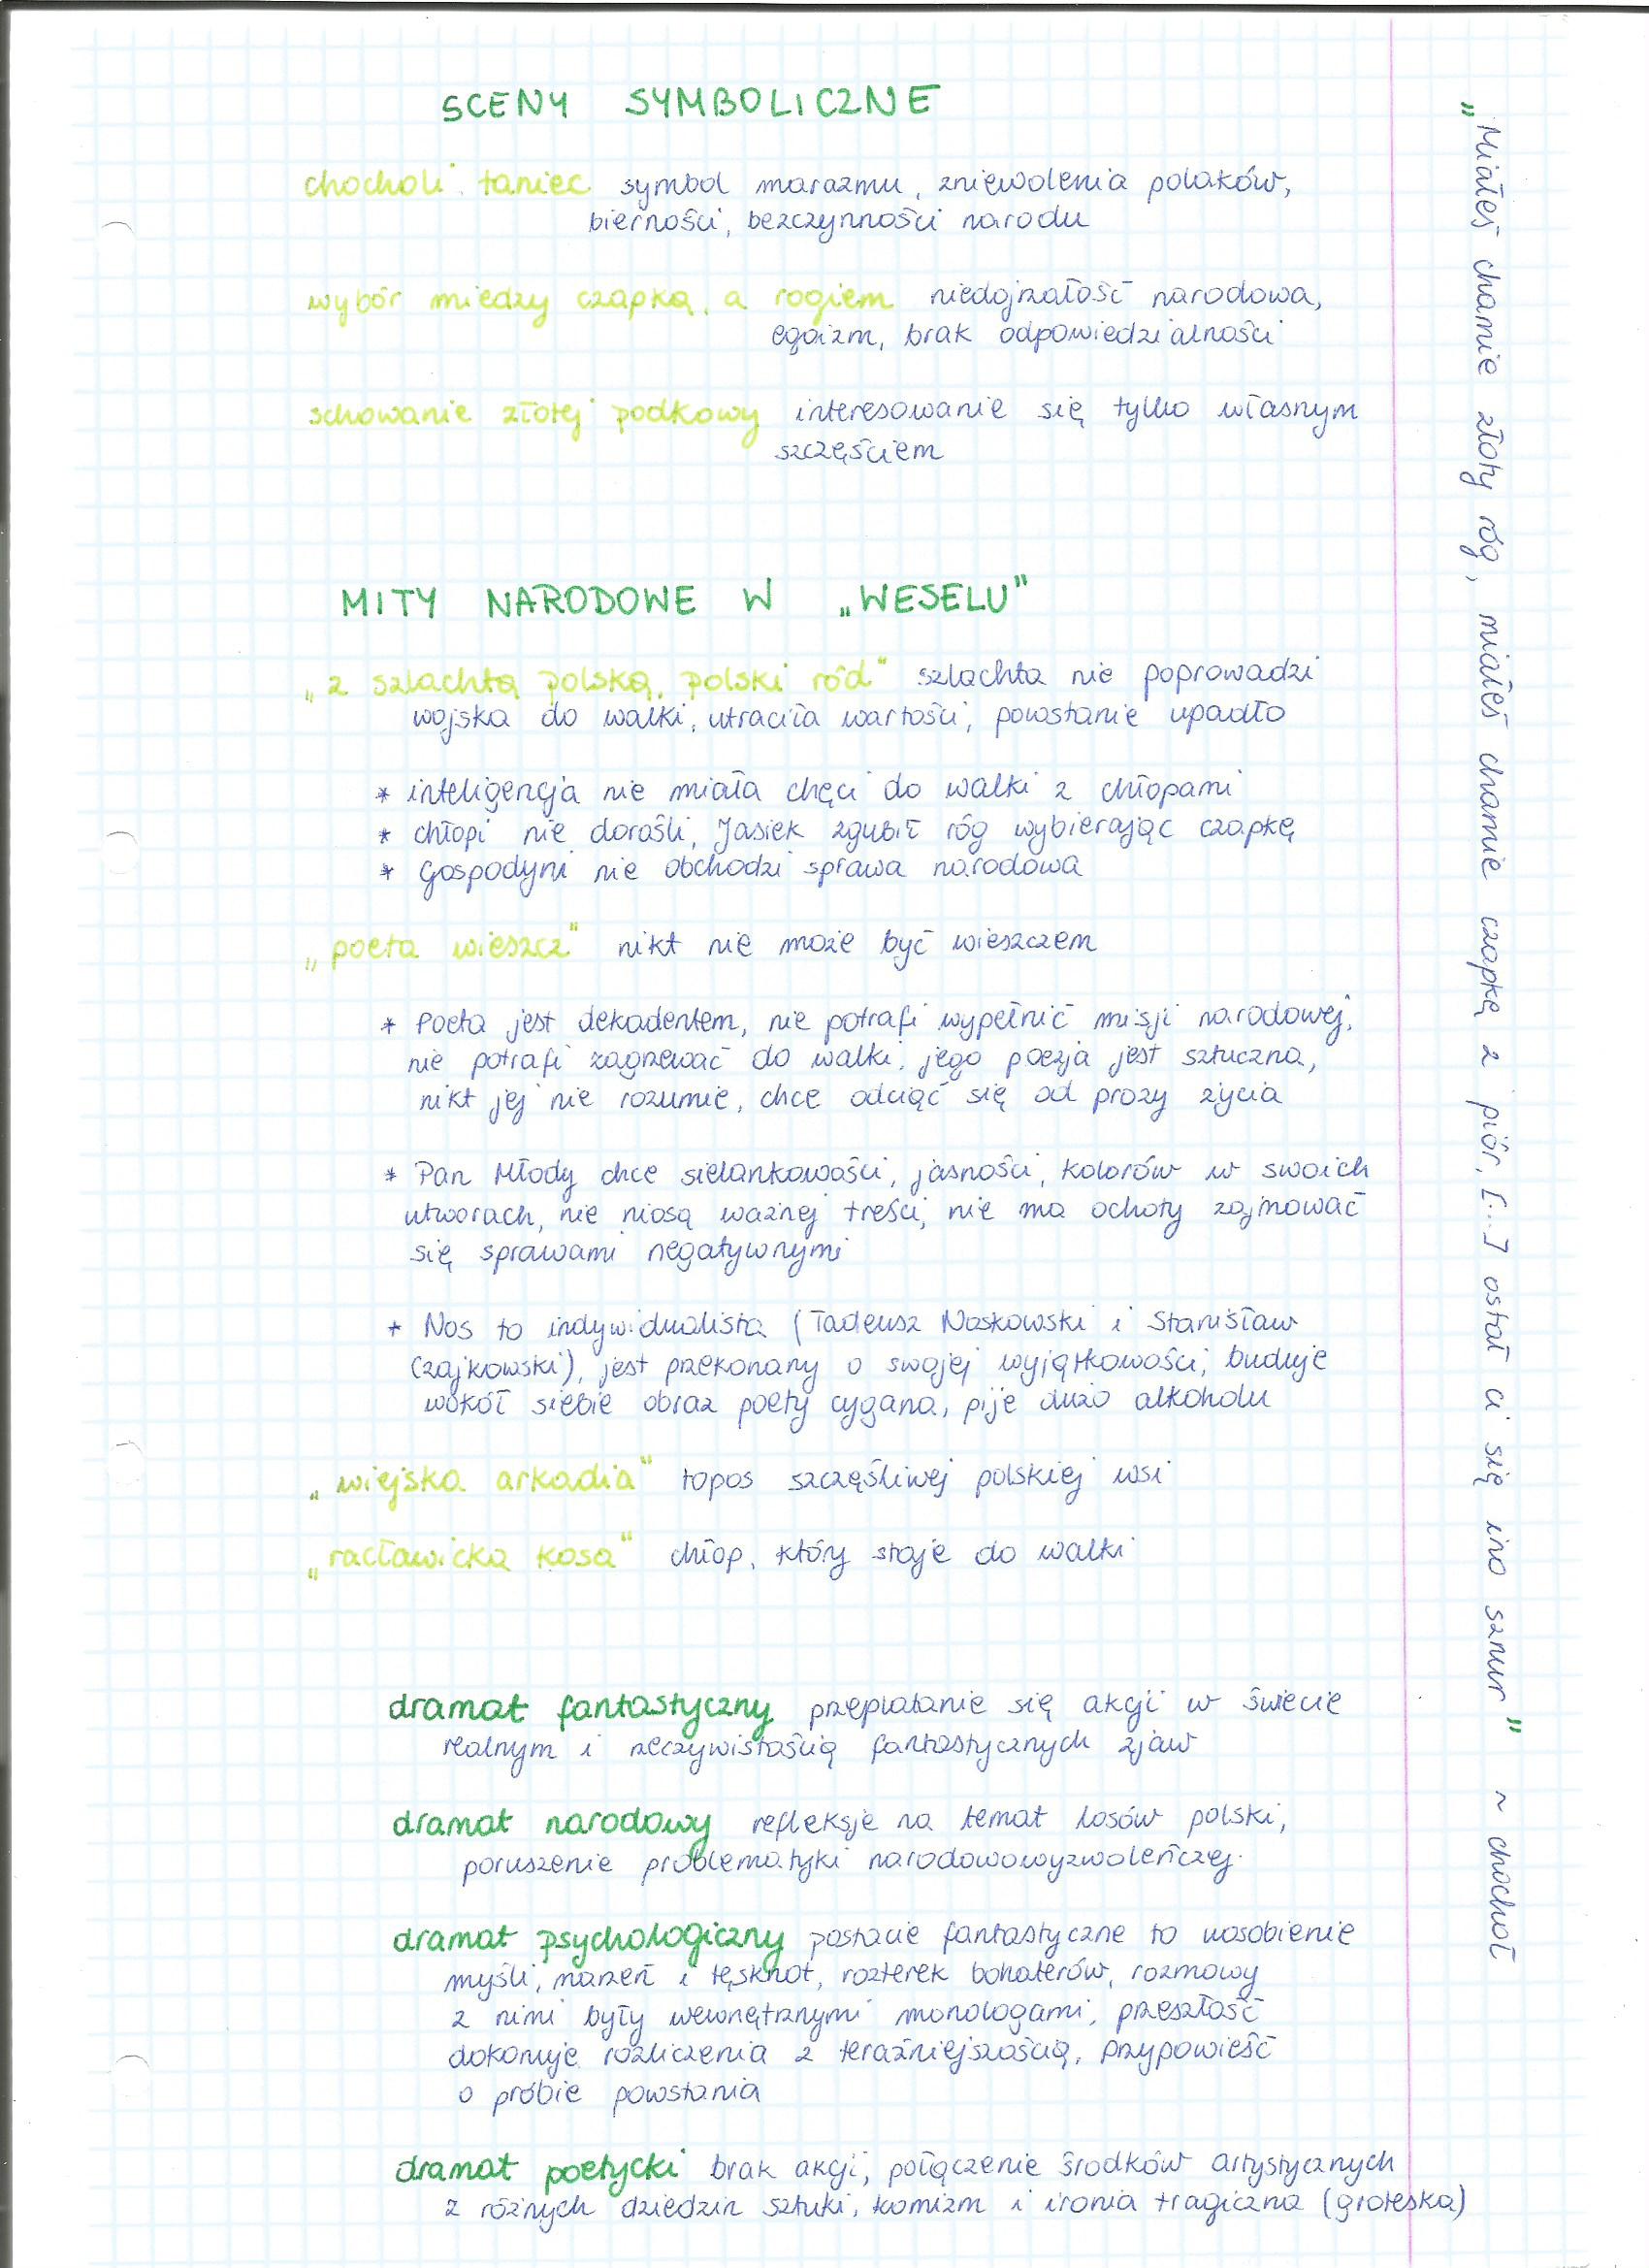 SCENY SYMBOLICZNE
chocholi taniec symbol marazmu, zniewolenia polaków,
bierności, bezczynności narodu
wybór miedzy czapką, a rogiem niedojrzałość narodowa,
egoizm, brak odpowiedzialności
schowanie złotej podkowy interesowanie się tylko własnym
szczęściem
MITY NARODOWE W „WESELU”
„z szlachtą polską, polski ród” szlachta nie poprowadzi
wojska do walki, utraciła wartości, powstanie upadło
* inteligencja nie miała chęci do walki z chłopami
* chłopi nie dorośli, Jasiek zgubił róg wybierając czapkę
* Gospodyni nie obchodzi sprawa narodowa
„poeta wieszcz” nikt nie może być wieszczem
* Poeta jest dekadentem, nie potrafi wypełnić misji narodowej,
nie potrafi zagrzewać do walki, jego poezja jest sztuczna,
nikt jej nie rozumie, chce odciąć się od prozy życia
* Pan Młody chce sielankowości, jasności, kolorów w swoich
utworach, nie niosą ważnej treści, nie ma ochoty zajmować
się sprawami negatywnymi
* Nos to indywidualista (Tadeusz Noskowski i Stanisław
Czajkowski), jest przekonany o swojej wyjątkowości, buduje
wokół siebie obraz poety cygana, pije dużo alkoholu
„wiejska arkadia” topos szczęśliwej polskiej wsi
„racławicka kosa” chłop, który staje do walki
dramat fantastyczny przeplatanie się akcji w świecie
realnym i rzeczywistością fantastycznych zjaw
dramat narodowy refleksje na temat losów polski,
poruszenie problematyki narodowowyzwoleńczej
dramat psychologiczny postacie fantastyczne to uosobienie
myśli, marzeń i tęsknot, rozterek bohaterów, rozmowy
z nimi były wewnętrznymi monologami, przeszłość
dokonuje rozliczenia z teraźniejszością, przypowieść
o próbie powstania
dramat poetycki brak akcji, połączenie środków artystycznych
z różnych dziedzin sztuki, komizm i ironia tragiczna (groteska)
„Miałeś chamie złoty róg, miałeś chamie czapkę z piór, [...] ostał ci się ino sznur” ~ chochoł